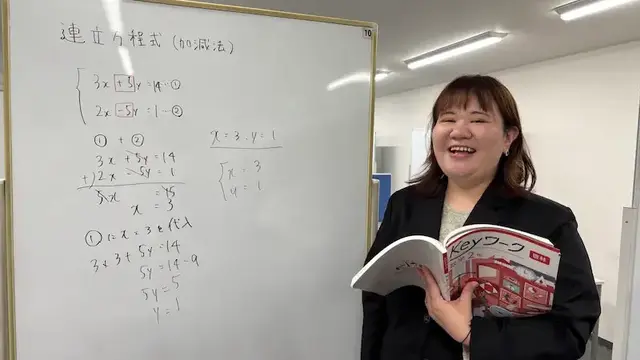 連立方程式 (加減法)
10
3x +5y = 14 -①
2x -5y = 1 -②
① + ②
3x + 5y = 14
+) 2x - 5y = 1
5x = 15
x = 3
①にx = 3を代入
3×3 + 5y = 14
5y = 14 - 9
5y = 5
y = 1
x = 3, y = 1
x = 3
y = 1
Keyワーク